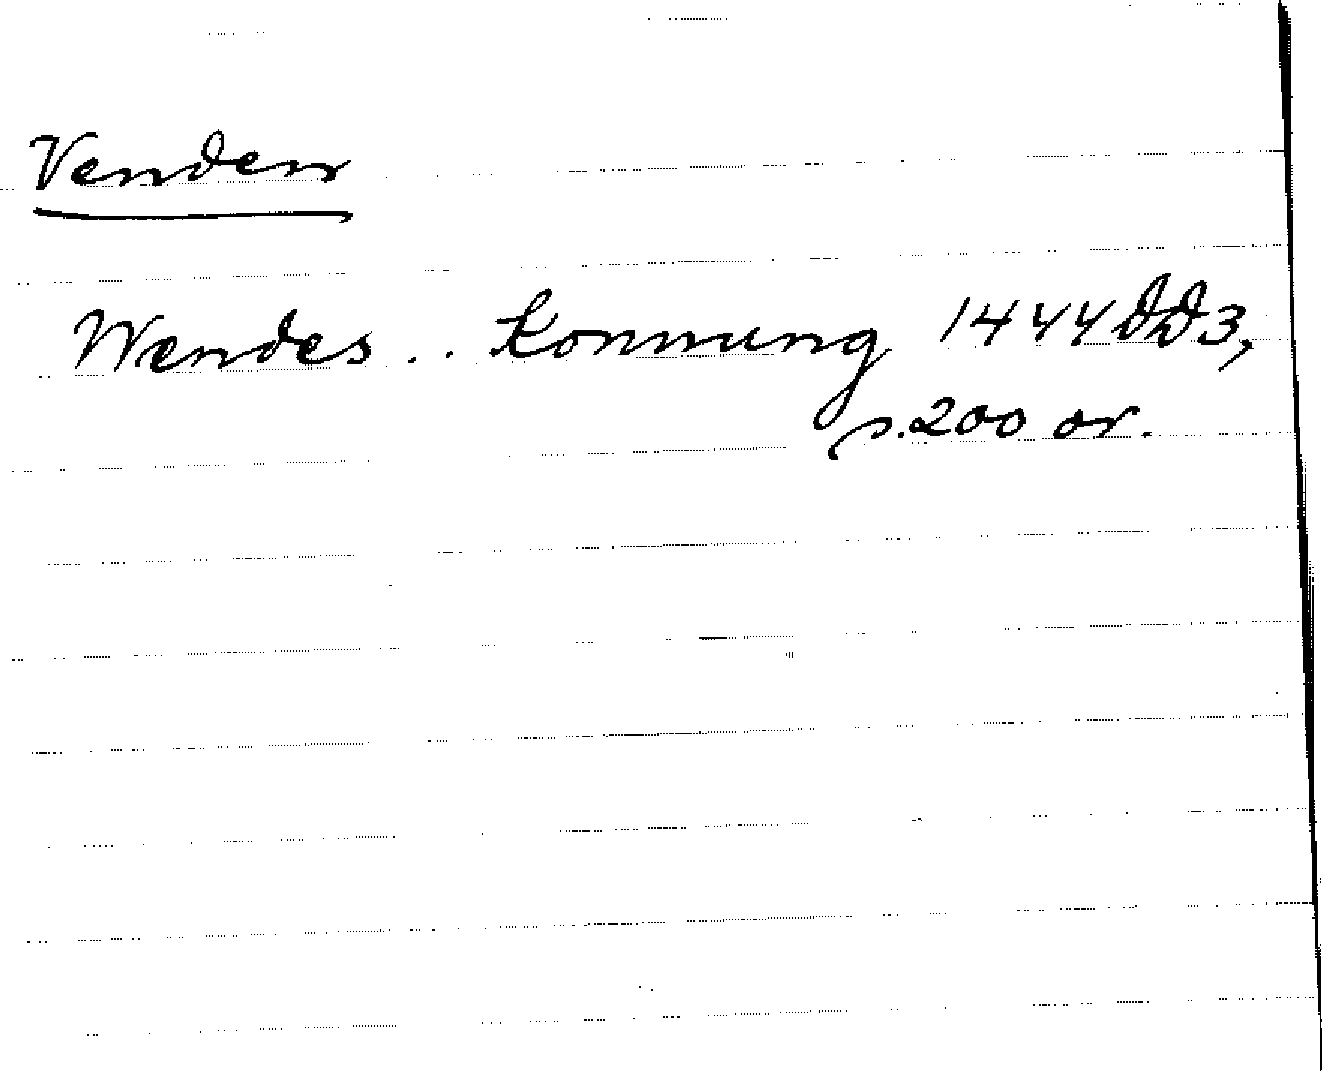 Venden
Wendes .. konnung 1444 DD3,
s. 200 or.